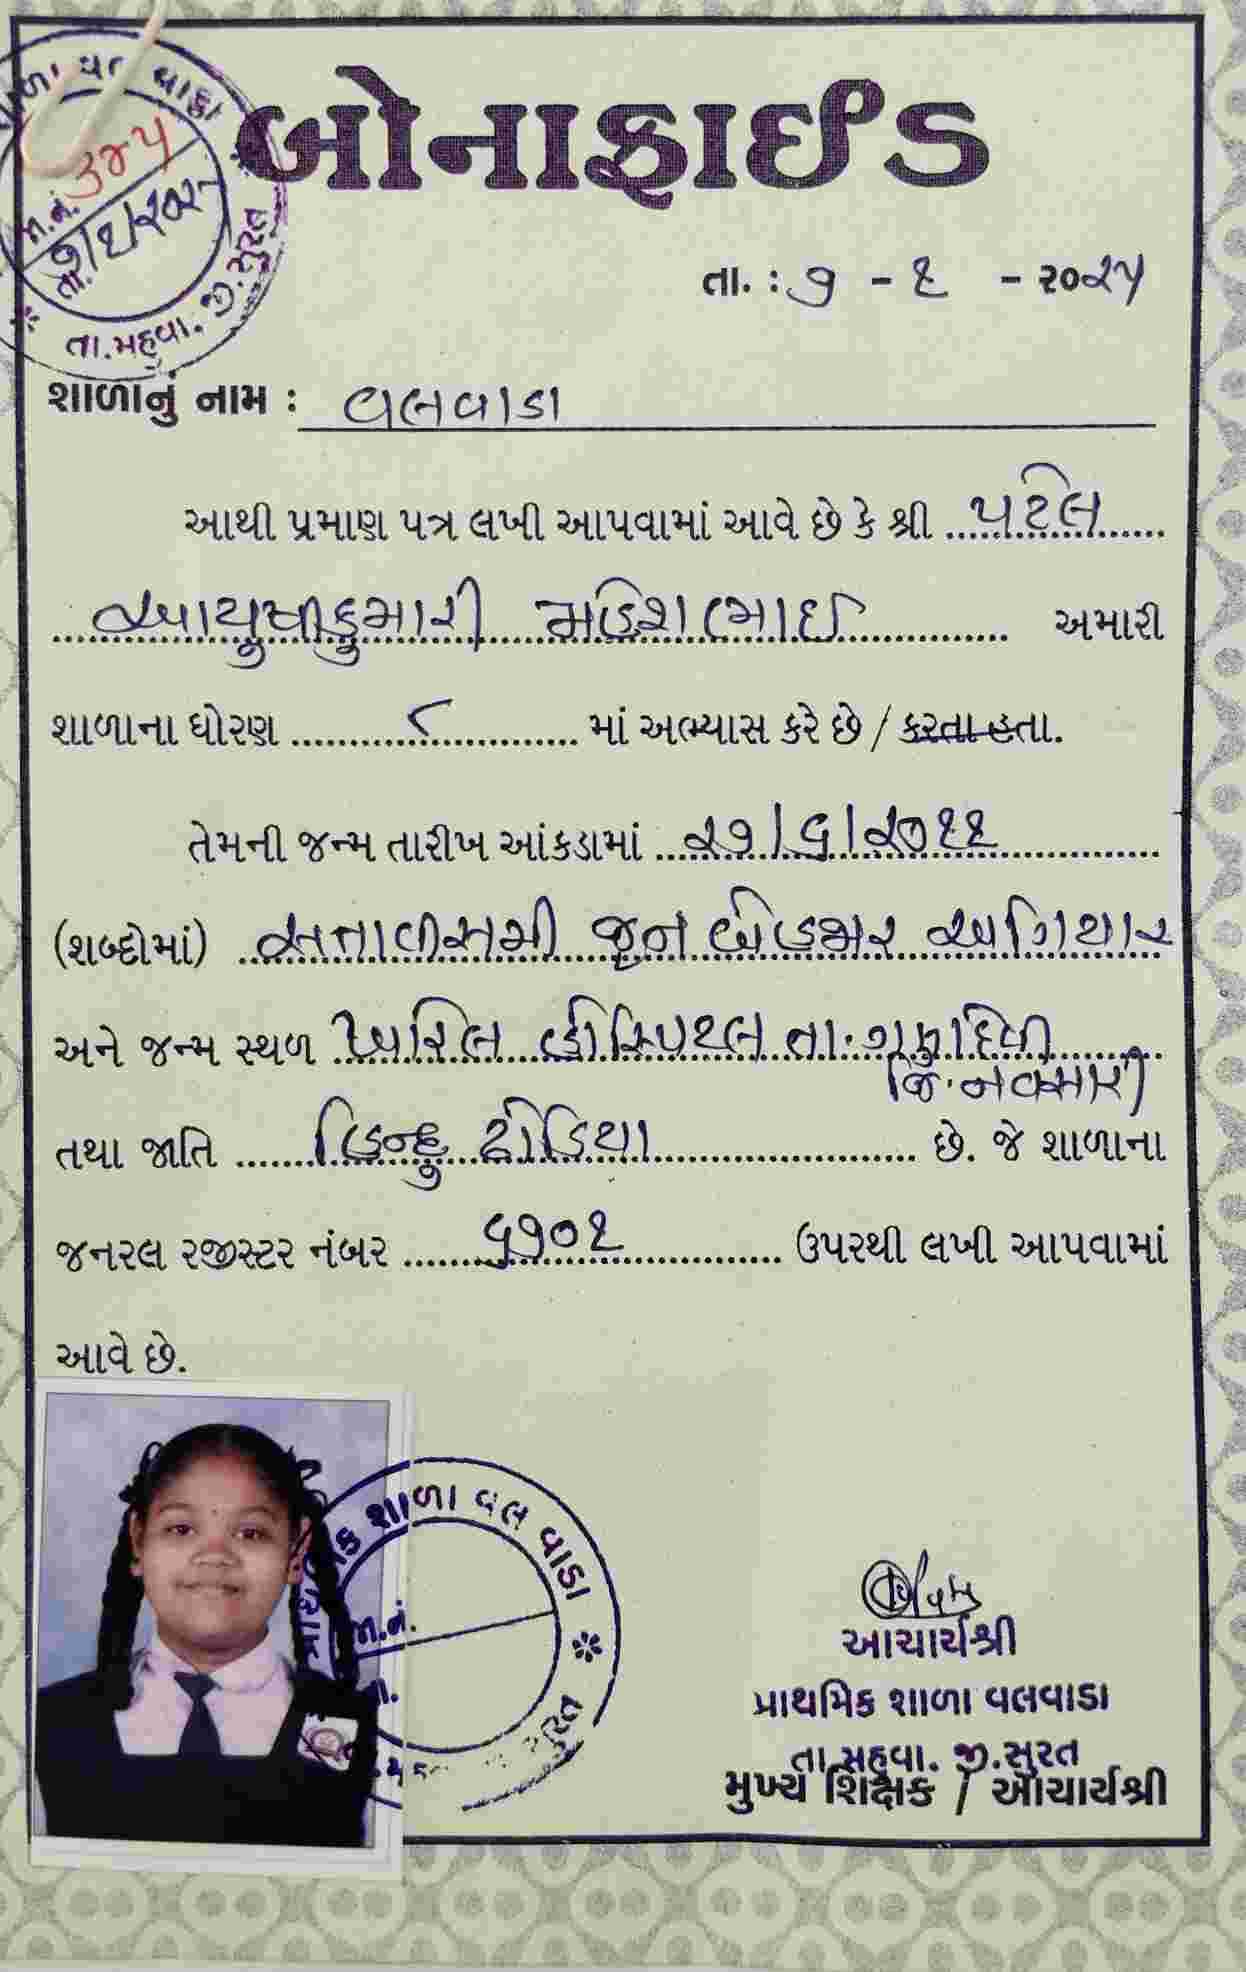 બોનાફાઈડ
જા.નં. ૩૪૫
તા.
તા.મહુવા. જી.સુરત
તા. : ૭ - ૧ - ૨૦૨૫
શાળાનું નામ : વલવાડા
આથી પ્રમાણ પત્ર લખી આપવામાં આવે છે કે શ્રી પટેલ
આયુષીકુમારી મહેશભાઈ અમારી
શાળાના ધોરણ ૮ માં અભ્યાસ કરે છે / કરતા હતા.
તેમની જન્મ તારીખ આંકડામાં ૨૭/૬/૨૦૧૧
(શબ્દોમાં) સત્તાવીસમી જૂન બેહજાર અગિયાર
અને જન્મ સ્થળ ખારેલ હોસ્પિટલ તા. ગણદેવી
જિ. નવસારી
તથા જાતિ હિન્દુ ઢોડિયા છે. જે શાળાના
જનરલ રજીસ્ટર નંબર ૬૭૦૧ ઉપરથી લખી આપવામાં
આવે છે.
પ્રાથમિક શાળા વલવાડા
જા.નં.
તા.
સુરત
આચાર્યશ્રી
પ્રાથમિક શાળા વલવાડા
તા.મહુવા. જી.સુરત
મુખ્ય શિક્ષક / આચાર્યશ્રી